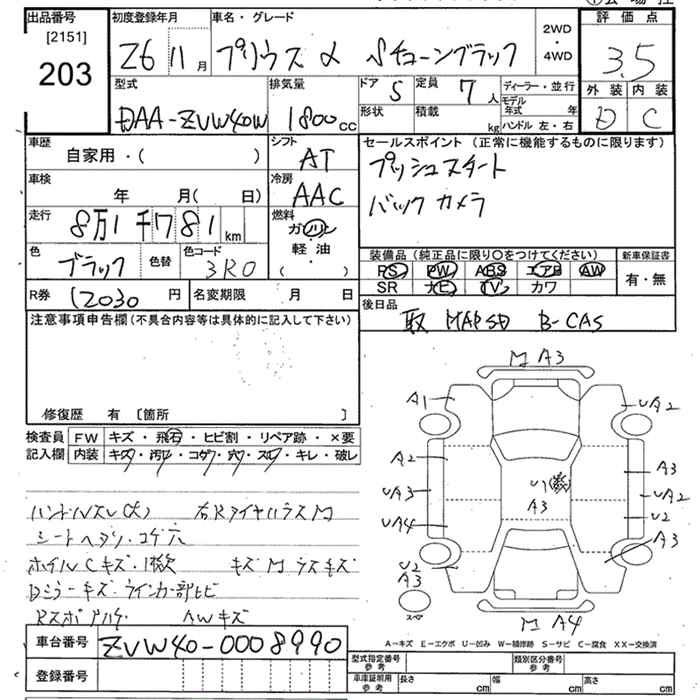 出品番号 初度登録年月 車名・グレード 評価点
[2151]
203
Z6 11月 プリウスα Sチューンブラック 2WD・4WD 3.5
型式 排気量 ドア 5 定員 7人 ディーラー・並行 外装 内装
DAA-ZVW40W 1800cc 形状 積載 kg モデル年式 年 D C
ハンドル 左・右
車歴 自家用・( ) シフト AT セールスポイント (正常に機能するものに限ります)
プッシュスタート
車検 年 月( 日) 冷房 AAC バックカメラ
走行 8万1千781km 燃料 ガソリン・軽・油 ( )
色 ブラック 色替 色コード 3R0 装備品 (純正品に限り○をつけてください) 新車保証書
PS PW ABS エアB AW 有・無
SR ナビ TV カワ
R券 12030円 名変期限 月 日 後日品
取 MAPSD B-CAS
注意事項申告欄 (不具合内容等は具体的に記入して下さい)
修復歴 有 〔箇所 〕
検査員記入欄 FW キズ・飛石・ヒビ割・リペア跡・×要
内装 キズ・汚れ・コゲ・穴・スレ・キレ・破レ
M A3
A1 UA2
A2 A3
UA3 U1 UA2
A3 U2
UA4 A3
U2
A3
スペア
M A4
ハンドルスレ 右RタイヤハウスM
シートヘタリ・コゲ穴
ホイルCキズ・1欠 キズMラスキズ
Dミラーキズ・ウインカー部ヒビ
AWキズ
A-キズ E-エクボ U-凹み W-補修跡 S-サビ C-腐食 XX-交換済
車台番号 ZVW40-0008990
登録番号
型式指定番号 参考 類別区分番号 参考
車庫証明用 参考 長さ cm 幅 cm 高さ cm